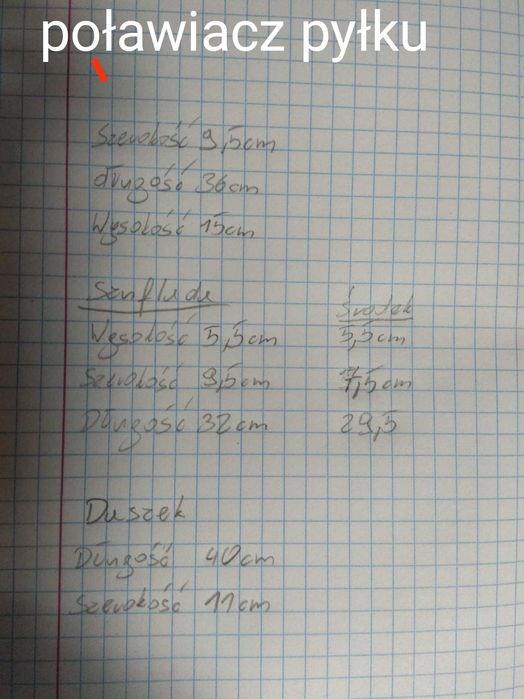 poławiacz pyłku
Szerokość 9,5cm
długość 36cm
Wysokość 15cm
Szuflada Środek
Wysokość 5,5cm 5,5cm
Szerokość 9,5cm 7,5cm
Długość 32cm 29,5
Daszek
Długość 40cm
Szerokość 11cm